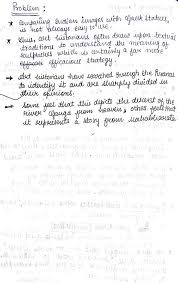 Problem :
* Comparing Indian images with Greek statues,
is not always easy to use.
* Thus, art historians often draw upon textual
traditions to understand the meaning of
sculptures which is certainly a far more
efficacious strategy.
→ Art historians have searched through the Puranas
to identify it and are sharply divided in
their opinions.
→ Some feel that this depicts the descent of the
river Ganga from heaven, others feel that
it represents a story from Mahabharata